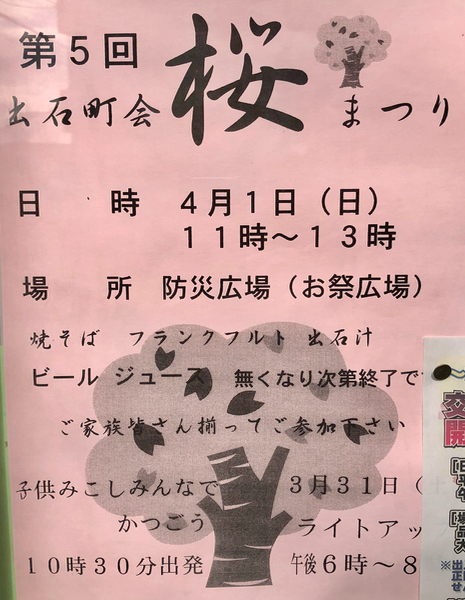 第5回
出石町会 桜 まつり
日 時 4月1日(日)
11時~13時
場 所 防災広場(お祭広場)
焼そば フランクフルト 出石汁
ビール ジュース 無くなり次第終了で
ご家族皆さん揃ってご参加下さい
子供みこしみんなで
かつごう
10時30分出発
3月31日(土
ライトアッ
午後6時~8
交
開